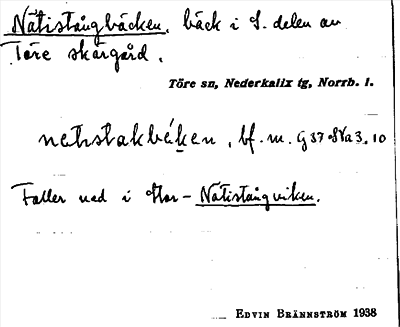 Nätistångbäcken, bäck i S. delen av
Töre skärgård.
Töre sn, Nederkalix tg, Norrb. l.
bf. m.
Faller ned i Stor-Nätistångviken.
Edvin Brännström 1938